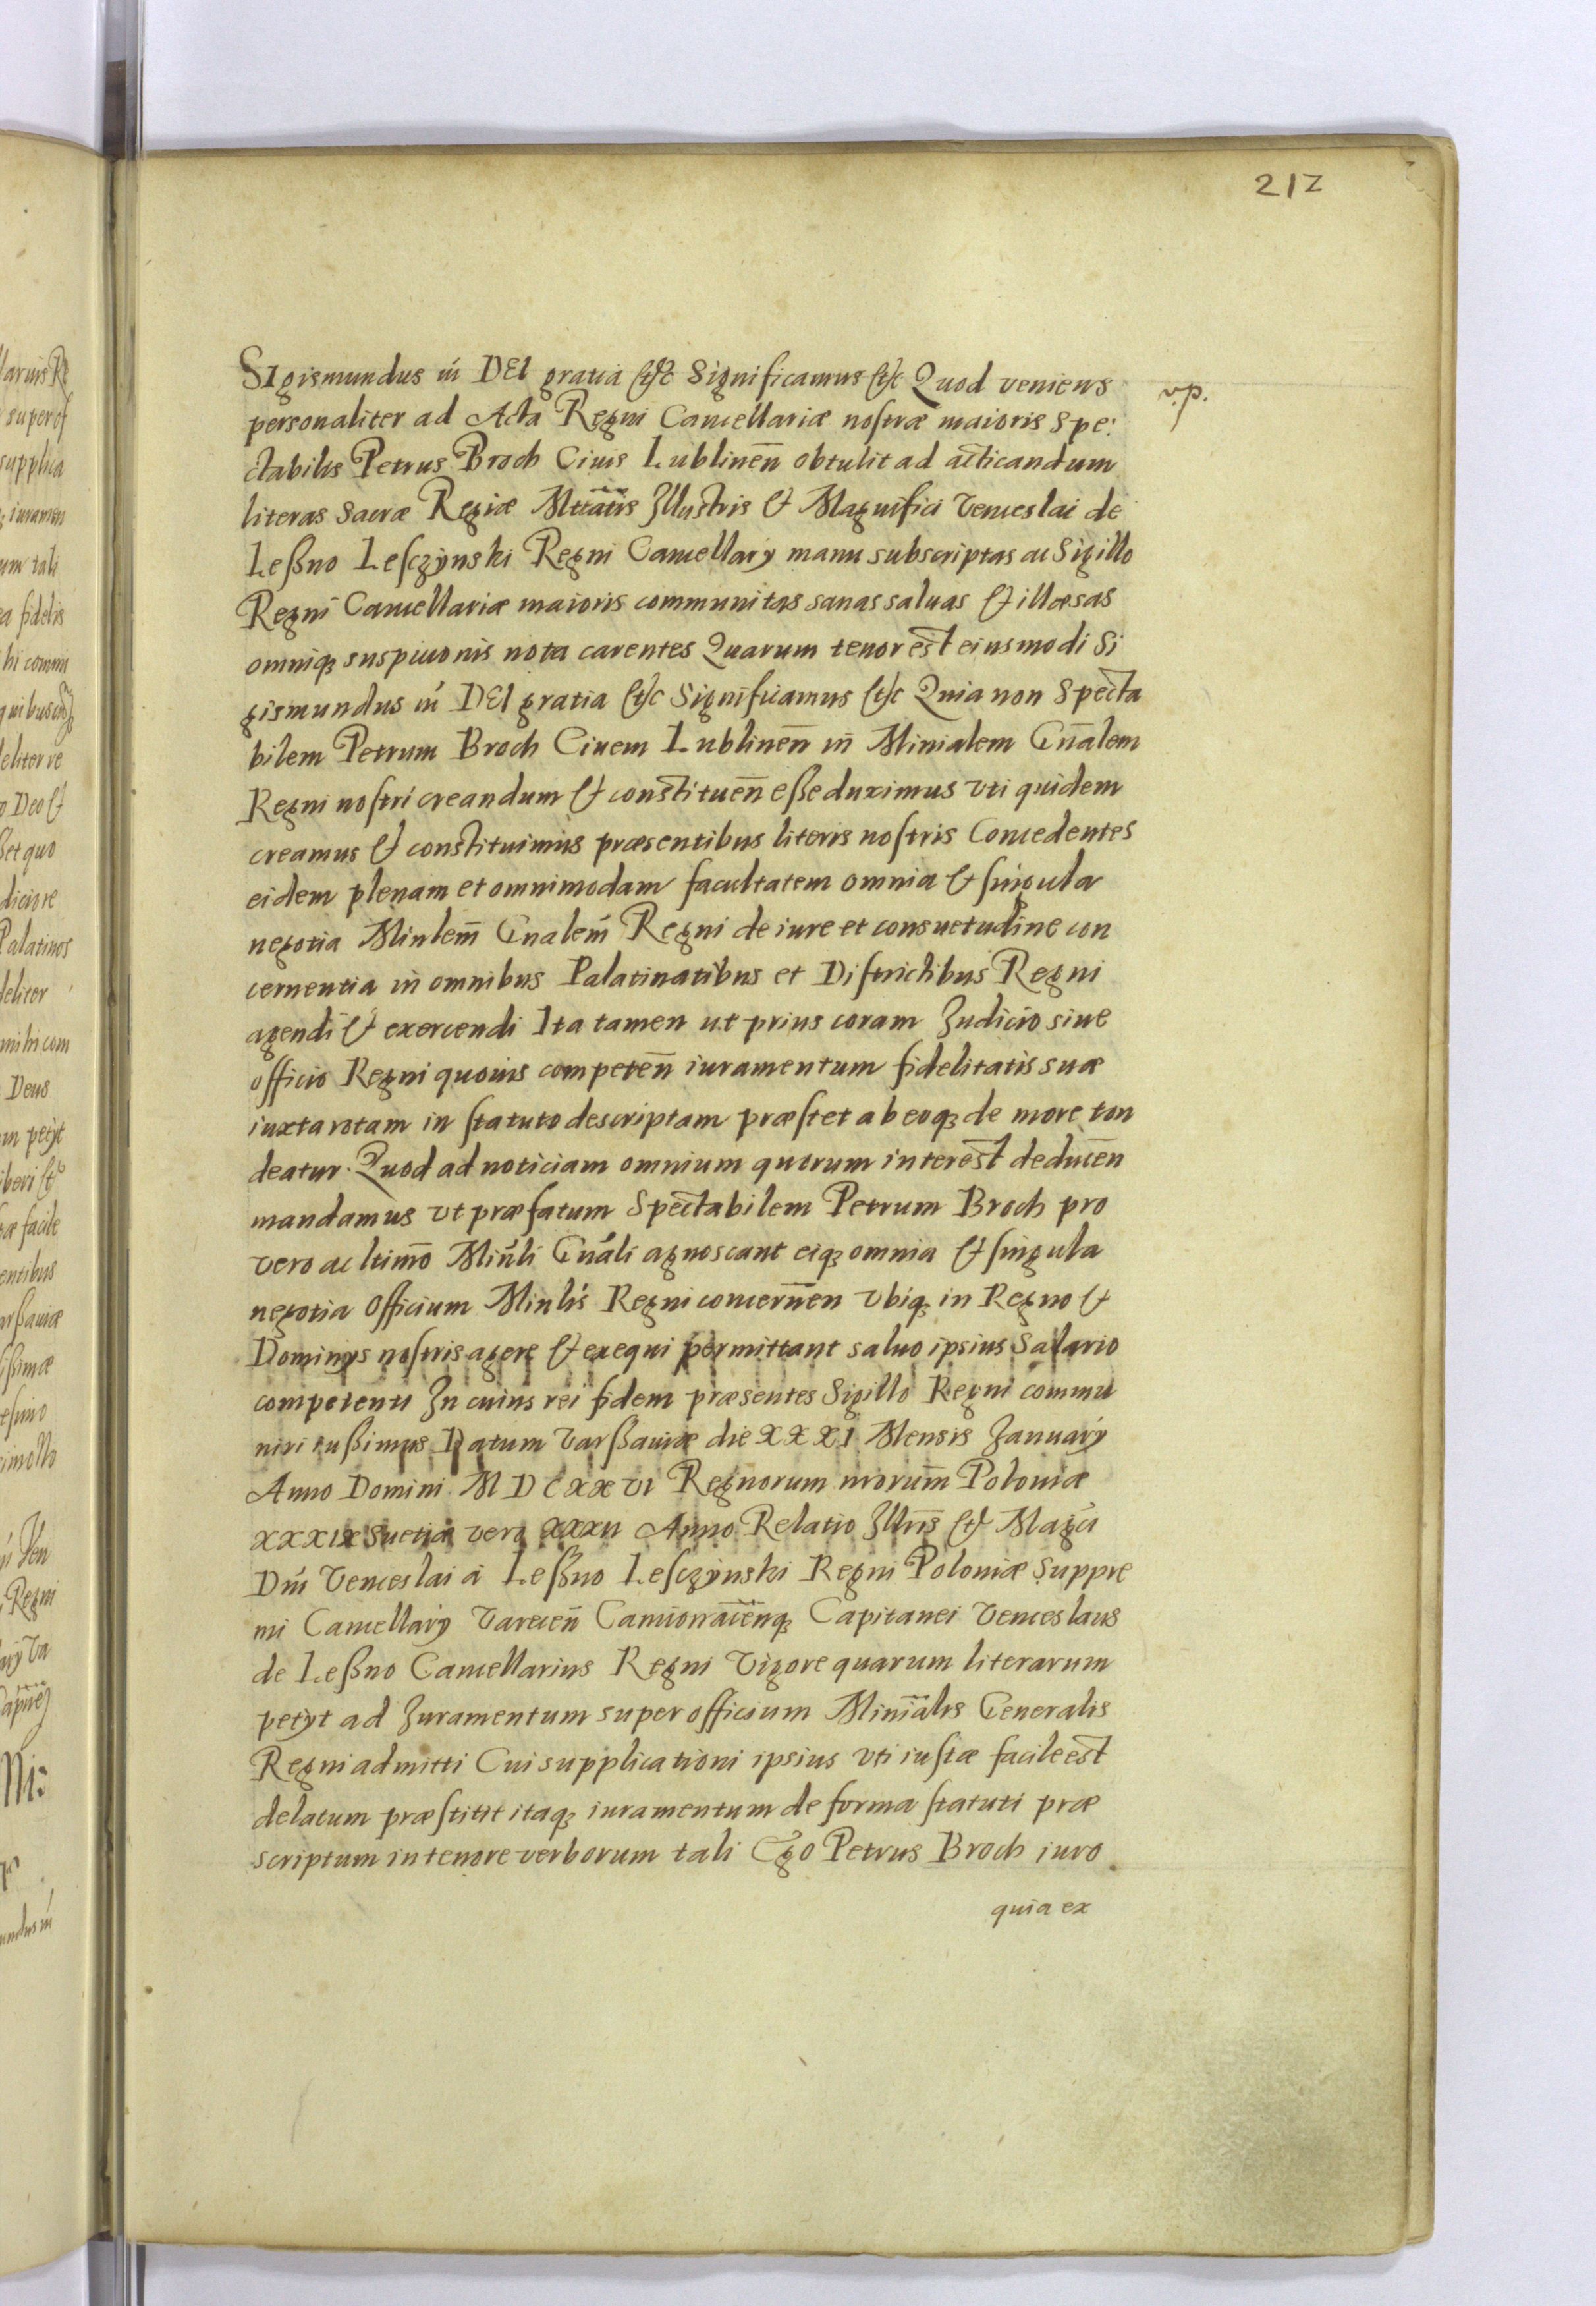 212
SIgismundus iii DEI gratia &c Significamus &c Quod veniens
v.p.
personaliter ad Acta Regni Cancellariæ nostræ maioris Spe:
ctabilis Petrus Broch Ciuis Lublineñ obtulit ad acticandum
literas Sacræ Regiæ Mttatis Illustris & Magnifici Venceslai de
Leßno Lesczynski Regni Cancellarÿ manu subscriptas ac Sigillo
Regni Cancellariæ maioris communitas sanas saluas & illæsas
omniq; suspicionis nota carentes Quarum tenor est eiusmodi Si
gismundus iii DEI gratia &c Significamus &c Quia non Specta
bilem Petrum Broch Ciuem Lublineñ in Minialem Gnalem
Regni nostri creandum & constitueñ eße duximus vti quidem
creamus & constituimus præsentibus literis nostris Concedentes
eidem plenam et omnimodam facultatem omnia & singula
negotia Minlem Gnalem Regni de iure et consuetudine con
cernentia in omnibus Palatinatibus et Districtibus Regni
agendi & exercendi Ita tamen ut prius coram Judicio siue
officio Regni quouis competeñ iuramentum fidelitatis suæ
iuxta rotam in statuto descriptam præstet ab eoq; de more ton
deatur. Quod ad noticiam omnium quorum interest deduceñ
mandamus vt præfatum Spectabilem Petrum Broch pro
vero ac ltimo Minli Gnali agnoscant eiq; omnia & singula
negotia Officium Minlis Regni concerneñ Vbiq; in Regno &
Dominÿs nostris agere & exequi permittant saluo ipsius Salario
competenti In cuius rei fidem præsentes Sigillo Regni commu
niri iußimus Datum Varßauiæ die XXXI Mensis Januarÿ
Anno Domini MDCXXVI Regnorum nrorum Poloniæ
XXXIX Suetiæ vero XXXII Anno Relatio Illris & Magci
Dni Venceslai à Leßno Lesczÿnski Regni Poloniæ Suppre
mi Cancellarÿ Vareceñ Camionacenq; Capitanei Venceslaus
de Leßno Cancellarius Regni Vigore quarum literarum
petÿt ad Juramentum super officium Minialis Generalis
Regni admitti Cui supplicationi ipsius vti iustæ facile est
delatum præstitit itaq; iuramentum de forma statuti præ
scriptum in tenore verborum tali Ego Petrus Broch iuro
quia ex